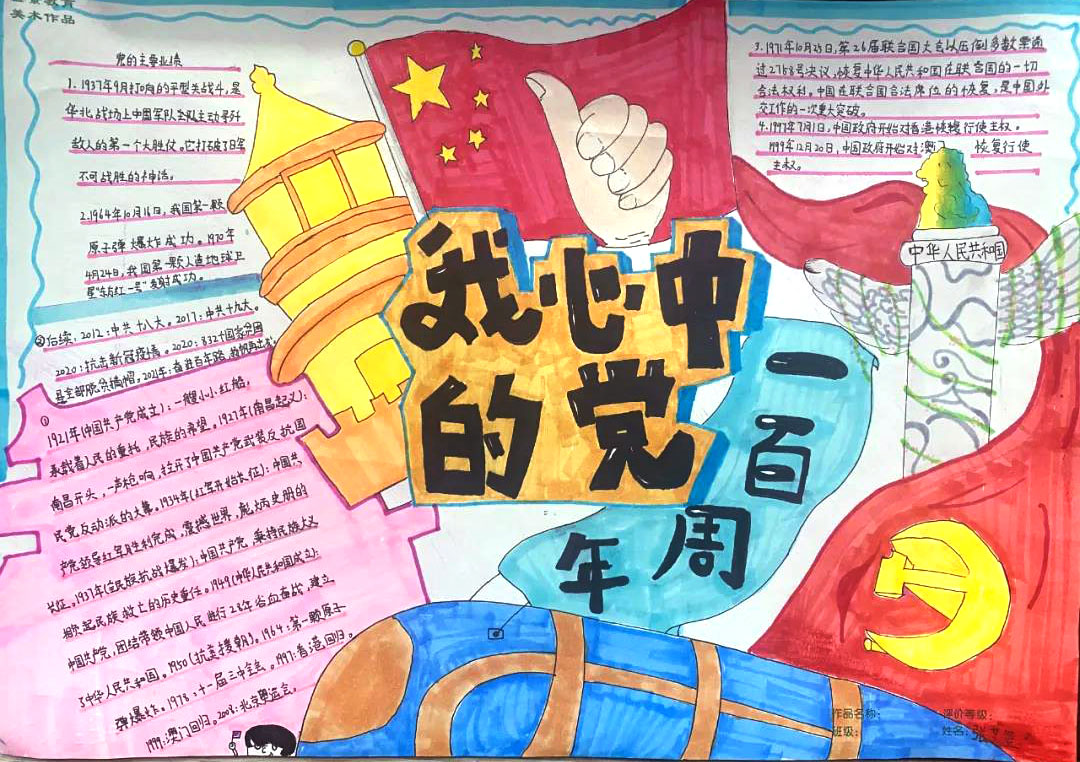 美术作品
党的主要业绩
1.1937年9月打响的平型关战斗,是
华北战场上中国军队主动寻歼
敌人的第一个大胜仗。它打破了日军
不可战胜的神话。
2.1964年10月16日,我国第一颗
原子弹爆炸成功。1970年
4月24日,我国第一颗人造地球卫
星"东方红一号"发射成功。
②后续:2012:中共十八大。2017:中共十九大。
2020:抗击新冠疫情。2020:832个国家贫困
县全部脱贫摘帽。2021年:奋进百年路
①
1921年(中国共产党成立):一艘小小红船,
承载着人民的重托,民族的希望。1927年(南昌起义):
南昌开头,一声枪响,拉开了中国共产党武装反抗国
民党反动派的大幕。1934年(红军开始长征):中国共
产党领导红军胜利完成,震撼世界,彪炳史册的
长征。1937年(全民族抗战爆发):中国共产党,秉持民族大义
担起民族救亡的历史重任。1949(中华人民共和国成立):
中国共产党,团结带领中国人民进行28年浴血奋战,建立
了中华人民共和国。1950(抗美援朝)。1964:第一颗原子
弹爆炸。1978:十一届三中全会。1997:香港回归。
1999:澳门回归。2008:北京奥运会。
我心中
的党
一百周年
3.1971年10月25日,第26届联合国大会以压倒多数票通
过2758号决议,恢复中华人民共和国在联合国的一切
合法权利,中国在联合国合法席位的恢复,是中国外
交工作的一次重大突破。
4.1997年7月1日,中国政府开始对香港恢复行使主权。
1999年12月20日,中国政府开始对澳门 恢复行使
主权。
中华人民共和国
作品名称: 评价等级:
班级: 姓名:张